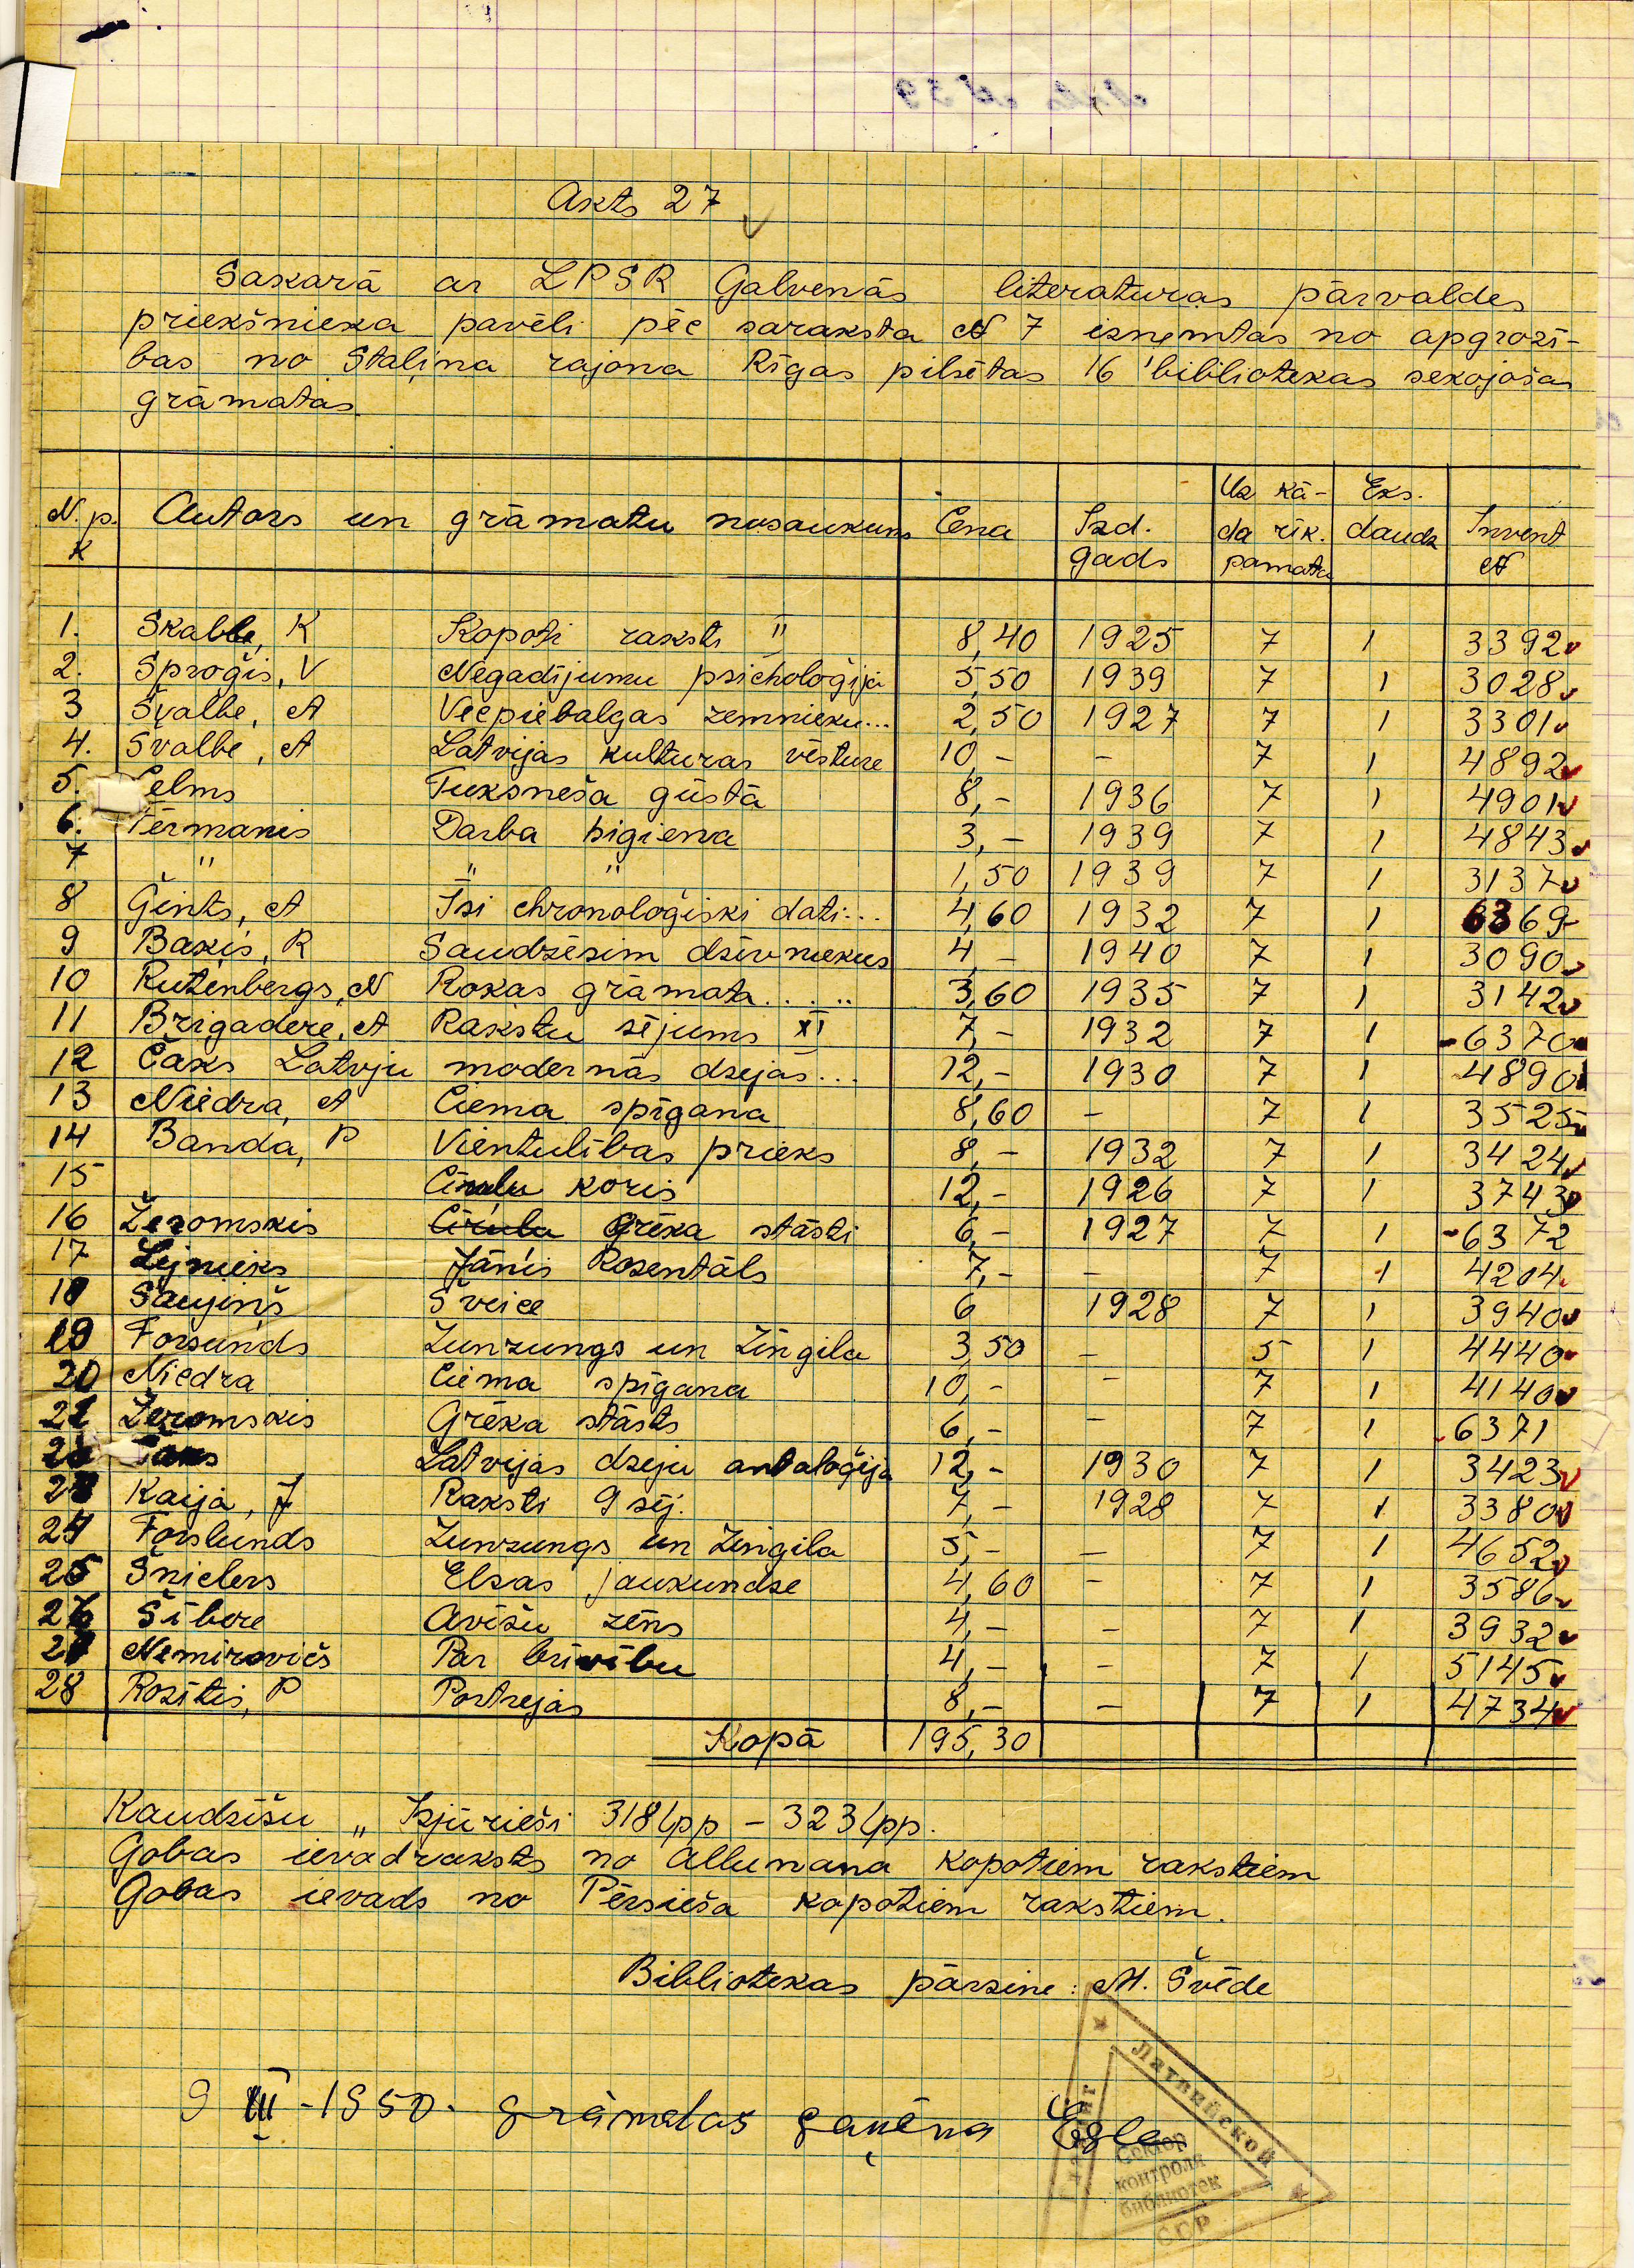 Akts 27
Sakarā ar LPSR Galvenās literaturas pārvaldes
priekšnieka pavēli pēc saraksta N 7 izņemtas no apgrozī-
bas no Staļina rajona Rīgas pilsētas 16 bibliotekas sekojošas
grāmatas.
N. p. k Autors un grāmatu nosaukums Cena Izd. gads Uz kā- da rīk. pamata Eks. daudz Invent N
1. Skalbe, K Kopoti raksti II 8,40 1925 7 1 3392
2. Sproģis, V Negadījumu psichologija 5,50 1939 7 1 3028
3 Švalbe, A Vecpiebalgas zemnieku... 2,50 1927 7 1 3301
4. Švalbe, A Latvijas kulturas vēsture 10,- - 7 1 4892
5. Celms Tuksneša gūstā 8,- 1936 7 1 4901
6. Termanis Darba higiena 3,- 1939 7 1 4843
7 " " " 1,50 1939 7 1 3137
8 Ģints, A Īsi chronoloģiski dati... 4,60 1932 7 1 6369
9 Baķis, R Saudzēsim dzīvniekus 4,- 1940 7 1 3090
10 Rutenbergs, N Rokas grāmata..... 3,60 1935 7 1 3142
11 Brigadere, A Rakstu sējums XI 7,- 1932 7 1 6370
12 Čaks Latvju modernās dzejas... 12,- 1930 7 1 4890
13 Niedra, A Ciema spīgana 8,60 - 7 1 3525
14 Banda, P Vientulības prieks 8,- 1932 7 1 3424
15 Cīruļu koris 12,- 1926 7 1 3743
16 Žeromskis Cīruļu Grēka stāsti 6,- 1927 7 1 6372
17 Lejnieks Jānis Rozentāls 7,- - 7 1 4204
18 Saujiņš Šveice 6 1928 7 1 3940
19 Forsunds Zunzungs un Zingila 3,50 - 5 1 4440
20 Niedra Ciema spīgana 10,- - 7 1 4140
21 Žeromskis Grēka stāsts 6,- - 7 1 6371
22 Čaks Latvijas dzeju antaloģija 12,- 1930 7 1 3423
23 Kaija, J Raksti 9 sēj. 7,- 1928 7 1 3380
24 Forslunds Zunzungs un Zingila 5,- - 7 1 4652
25 Šnielers Elzas jaukundze 4,60 - 7 1 3586
26 Šībere Avīžu zēns 4,- - 7 1 3932
27 Nemirovičs Par brīvību 4,- - 7 1 5145
28 Rozītis, P Portrejas 8,- - 7 1 4734
Kopā 195,30
Kaudzīšu „ Izjūrieši 318 lpp - 323 lpp.
Gobas ievadraksts no Allunana kopotiem rakstiem
Gobas ievads no Pērsieša kopotiem rakstiem.
Bibliotekas pārzine: M. Švēde
9 III - 1950. grāmatas saņēma Egle
Латвийской
Сектор
контроля
библиотек
ССР